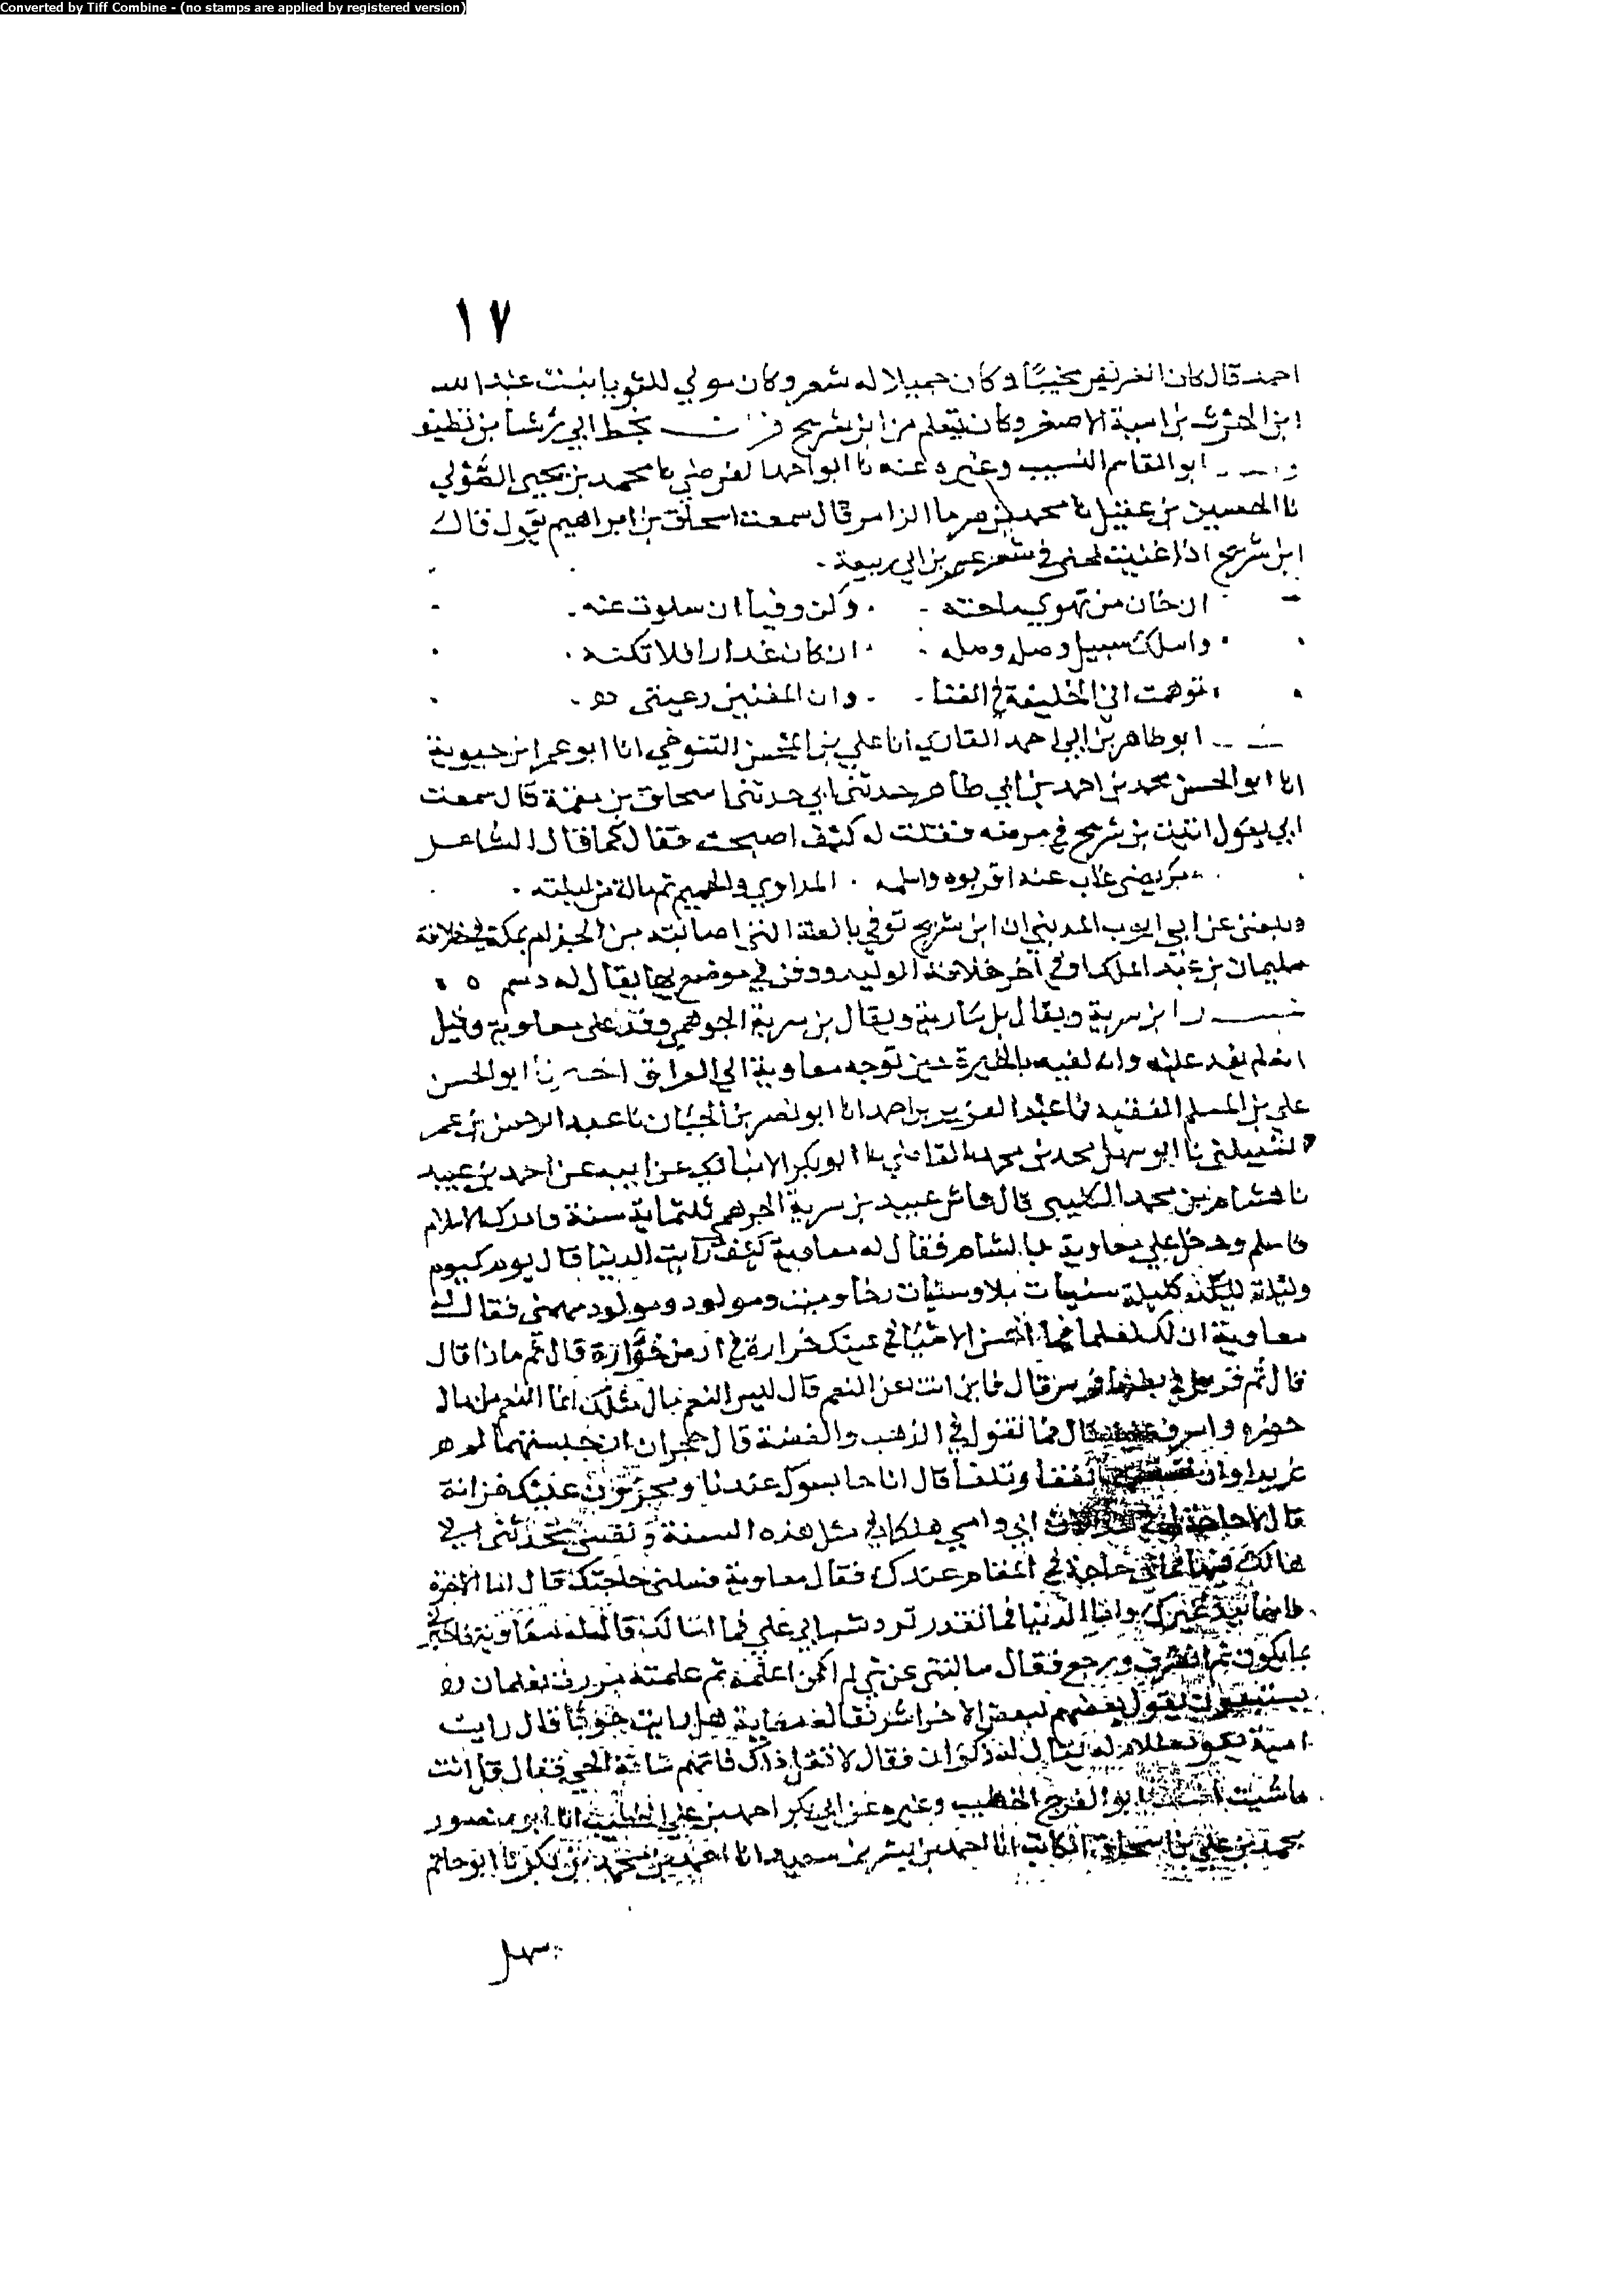 Converted by Tiff Combine - (no stamps are applied by registered version)
١٧
احمد قال كان الغريض مخنثا وكان جميلا له شعر وكان مولي للثريا بنت عبد الله
ابن الحرث بن امية الاصغر وكان يتعلم من ابن سريج قرات بخط ابي رشا بن نظيف
و ابو القاسم النسيب وغيره عنه نا ابو احمد الفرضي نا محمد بن يحيى الصولي
نا الحسين بن عقيل نا محمد بن قال سمعت اسحاق بن ابراهيم يقول قال
ابن سريج اذا غنيت لحني في شعر عمر بن ابي ربيعة
ان خان من تهوي فلا تخنه وكن وفيا ان سلوت عنه
واسلك سبيل وصله وصله ان كان غدارا فلا تكنه
توهمت اني الخليفة في الغنا وان المغنين رعيتي
ابو طاهر بن ابي احمد القاري انا علي بن المحسن التنوخي انا ابو عمر ابن حيوية
انا ابو الحسن محمد بن احمد بن ابي طاهر حدثني ابي حدثني اسحاق بن قال سمعت
ابي يقول اتيت بن سريج في مرضه فقلت له كيف اصبحت فقال كما قال الشاعر
كريض غاب عند اقربوه واسلمه المداوي والحميم
وبلغني عن ابي ايوب المديني ان ابن سريج توفي بالعلة التي اصابته من الجذام بمكة في خلافة
سليمان بن عبد الملك او في اخر خلافة الوليد ودفن في موضع بها يقال له دسم ٥
ابن سرية ويقال بن سارية ويقال بن سرية الجرهمي وفد علي معاوية وقيل
انه لم يفد عليه وانه لقيه بالحيرة حين توجه معاوية الي العراق اخبرنا ابو الحسن
علي بن المسلم الفقيه نا عبد العزيز بن احمد انا ابو نصر بن الجبان نا عبد الرحمن بن عمر
نا ابو سهل محمد بن محمد القاضي نا ابو بكر الانباري عن ابيه عن احمد بن عبيد
نا هشام بن محمد الكلبي قال عاش عبيد بن سرية الجرهمي ثلثماية سنة وادرك الاسلام
فاسلم ودخل علي معاوية بالشام فقال له معاوية كيف رايت الدنيا قال يوم كيوم
وليلة كليلة سنيات بلا وسنيات رخا وميت ومولود ومولود فقال له
معاوية ان لك لعلما فما احسن الاشيا في عينك قال خرارة في ارض خوارة قال ثم ماذا قال
قال ثم فرس في بطنها فرس قال فاين انت عن النعم قال ليس النعم بمال مثلك انما النعم مال
حضره واشرف عليه قال فما تقول في الذهب والفضة قال حجران ان حبستهما لم
يزيدا وان نفقا وتلفا قال انا حابسوك عندنا ومجرون عليك خزانة
قال لا حاجة ابي وامي هلكا في مثل هذه السنة ونفسي تحدثني اني
هالك فيها فما حاجة في المقام عندك فقال معاوية فسلني حاجتك قال اما الاخرة
غيرك واما الدنيا فما تقدر ترد شبابي علي فما اسالك قال له معاوية فاخبرني
بما يكون ثم انصرف ورجع فقال سالتني عن شي لم اكن اعلمه ثم علمته مررت بغلمان
يستبقون يقول بعضهم لبعض الاخر اشر فقال له معاوية هل رايت قال رايت
امية يقوده غلام له يقال له ذكوان فقال لا تقل ذاك فانهم سادة الحي فقال قل انت
ما شيت ابو الفرج الخطيب وغيره عن ابي بكر احمد بن علي الخطيب انا ابو منصور
محمد بن علي بن اسحاق الكاتب انا احمد بن بشر بن سعيد انا احمد بن محمد بن بكر نا ابو حاتم
سهل